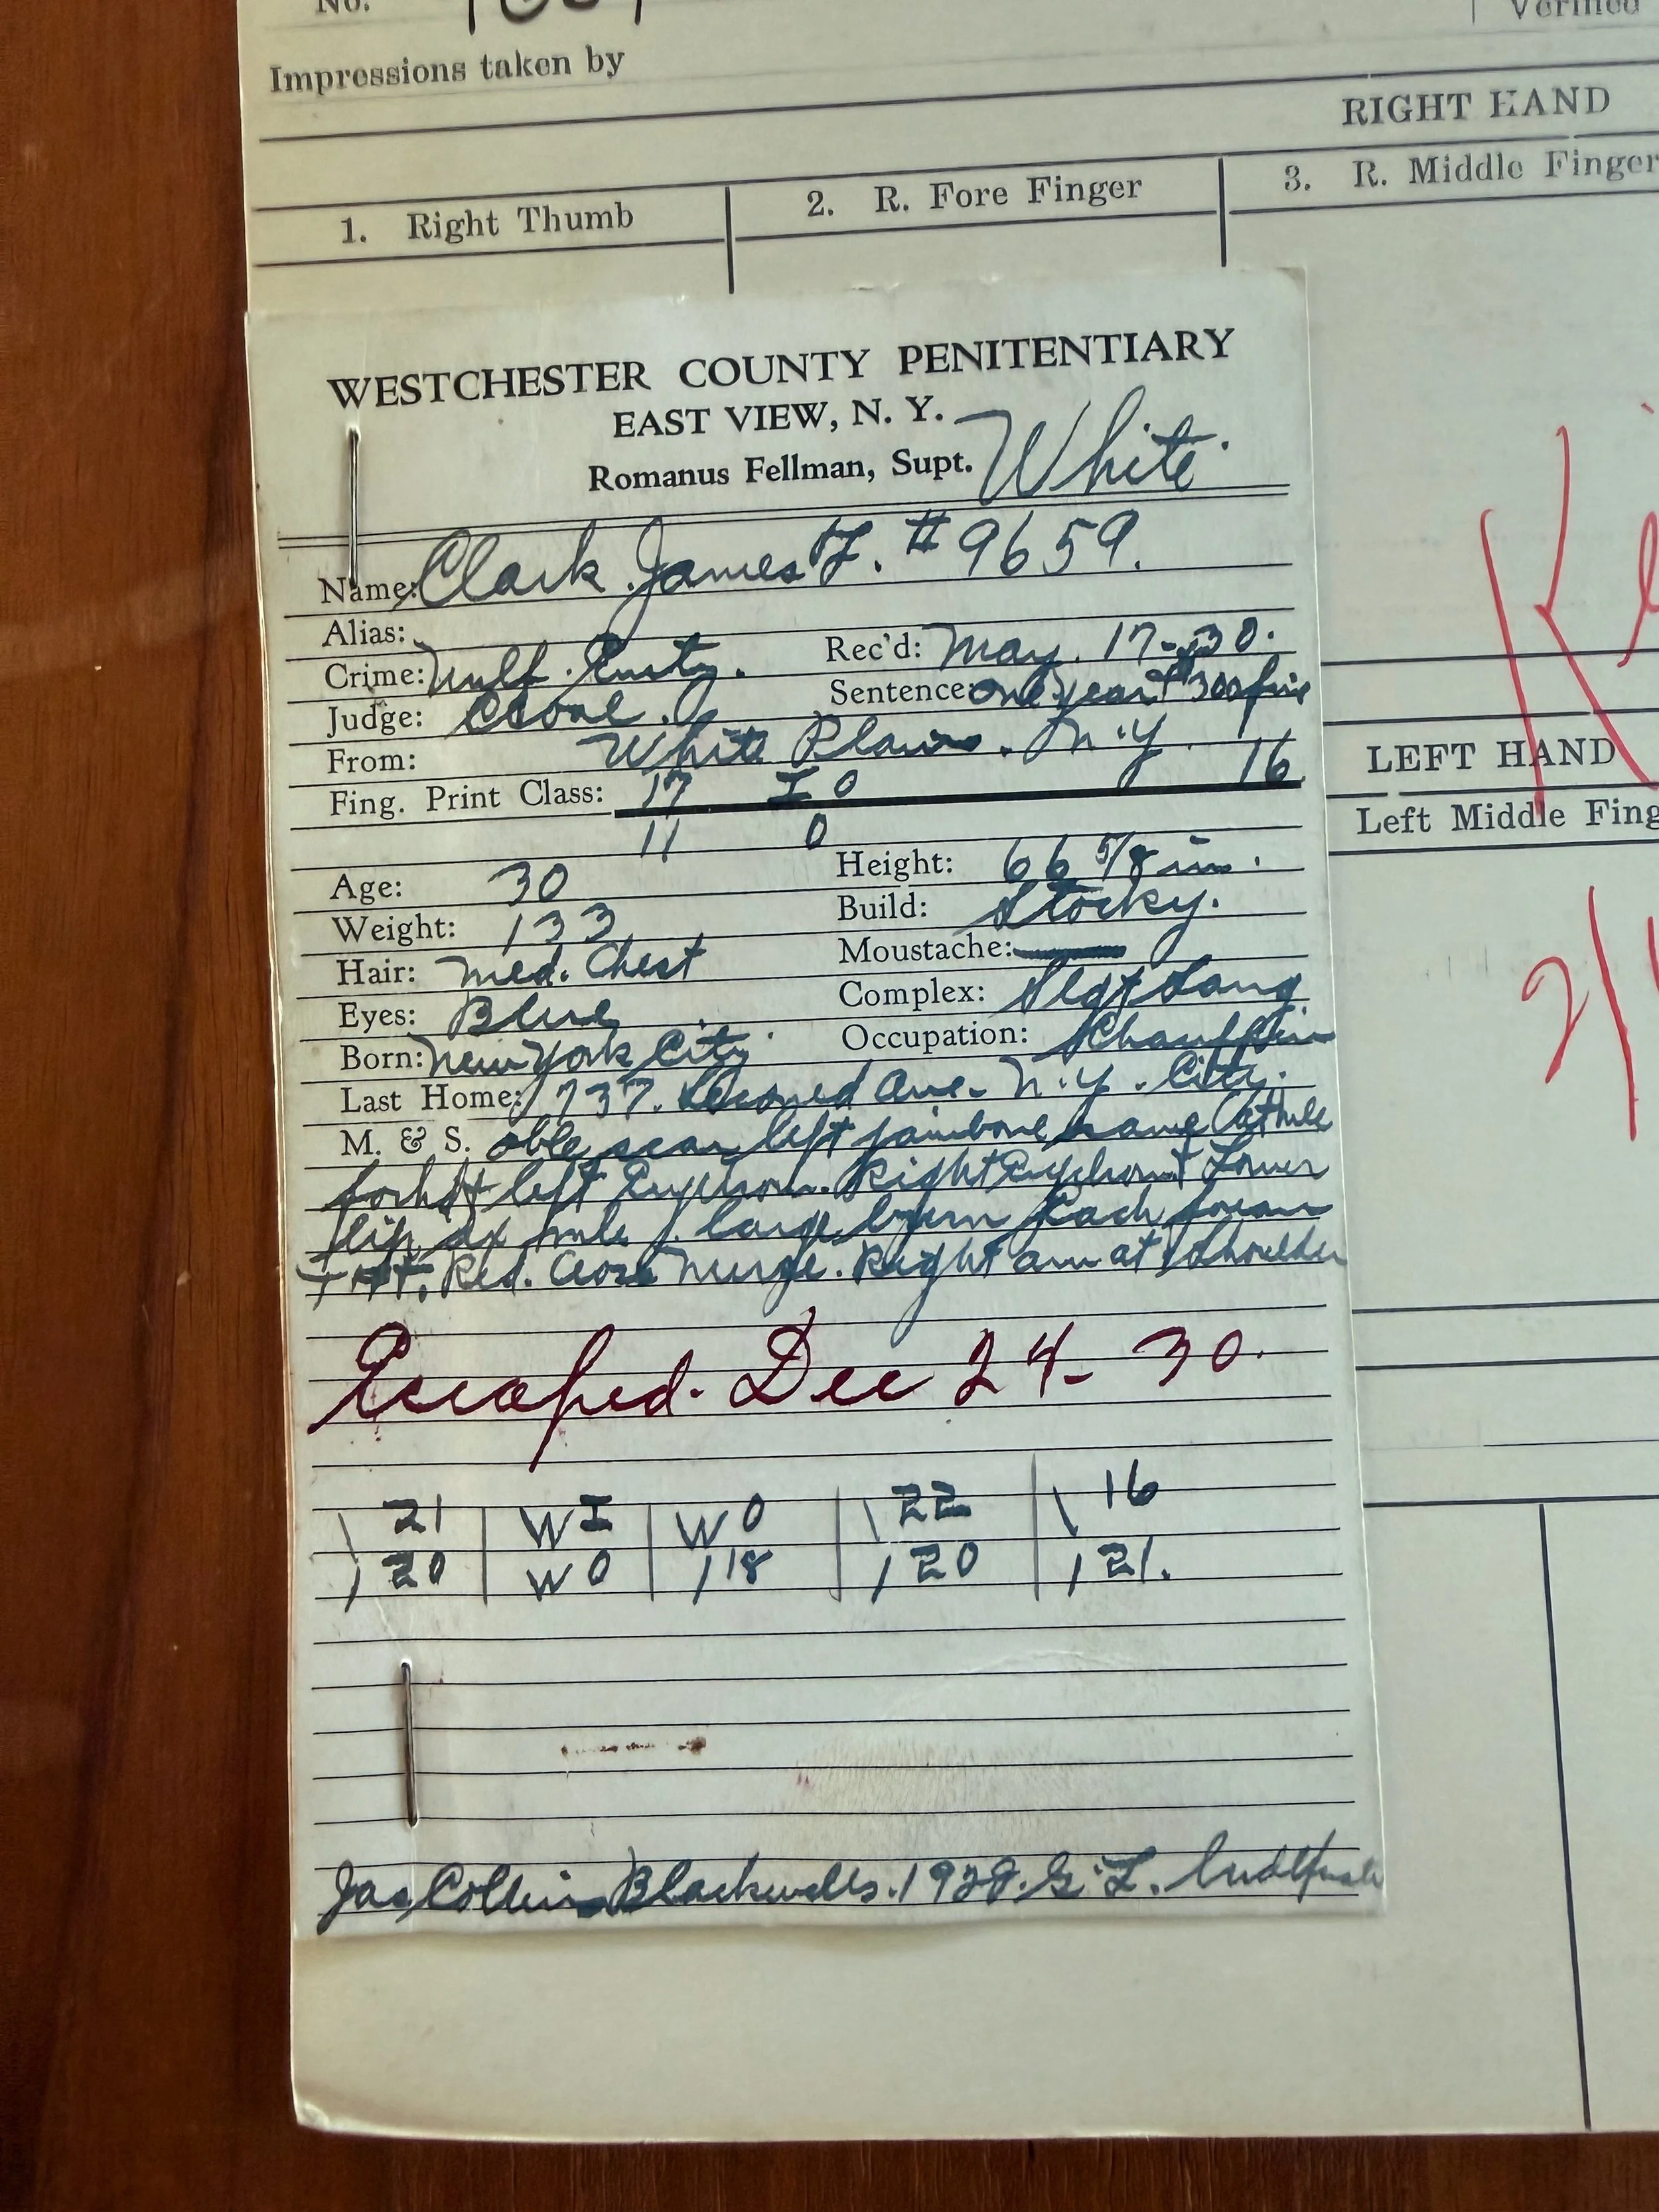 No.
Verified
Impressions taken by
RIGHT HAND
1. Right Thumb
2. R. Fore Finger
3. R. Middle Finger
WESTCHESTER COUNTY PENITENTIARY
EAST VIEW, N. Y.
Romanus Fellman, Supt.
White.
Name: Clark. James F. #9659.
Alias:
Crime: Unlf. Enty. Rec'd: May. 17-30.
Judge: Sentence: One year & $300 fine
From: White Plains. N.Y.
Fing. Print Class: 17 I O 16
11 O
Age: 30 Height: 66 5/8 in.
Weight: 133 Build: Stocky.
Hair: Med. Chest Moustache:
Eyes: Blue Complex:
Born: New York City Occupation:
Last Home: 737. Second Ave. N.Y. City.
M. & S. scar left
left Right Lower
lip large Each
Red. Cross Nurse. Right arm at Shoulder
Escaped. Dec 24-30.
\ 21 | W I | W O | \ 22 | \ 16
/ 20 | W O | / 18 | / 20 | / 21.
Jas Collins Blackwells. G. L.
LEFT HAND
Left Middle Fing